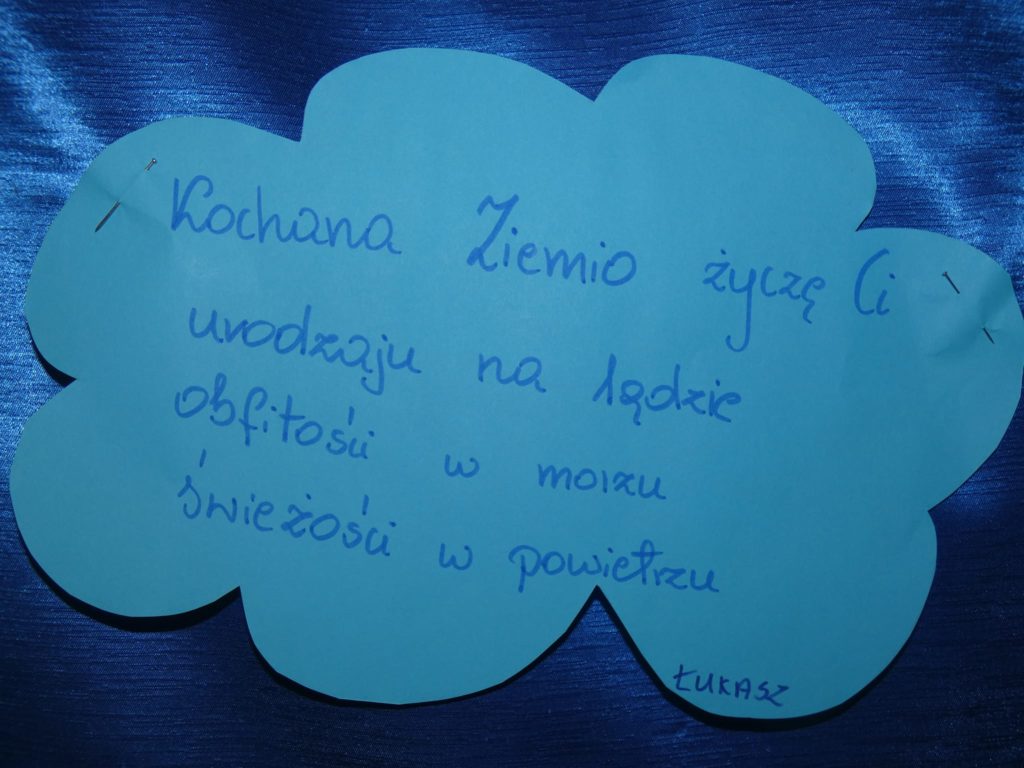 Kochana Ziemio życzę Ci
urodzaju na lądzie
obfitości w morzu
świeżości w powietrzu
ŁUKASZ